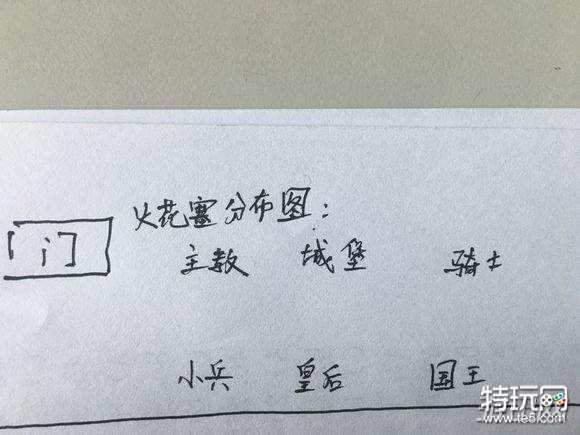 火花塞分布图:
门
主教 城堡 骑士
小兵 皇后 国王
特玩网
www.te5.com